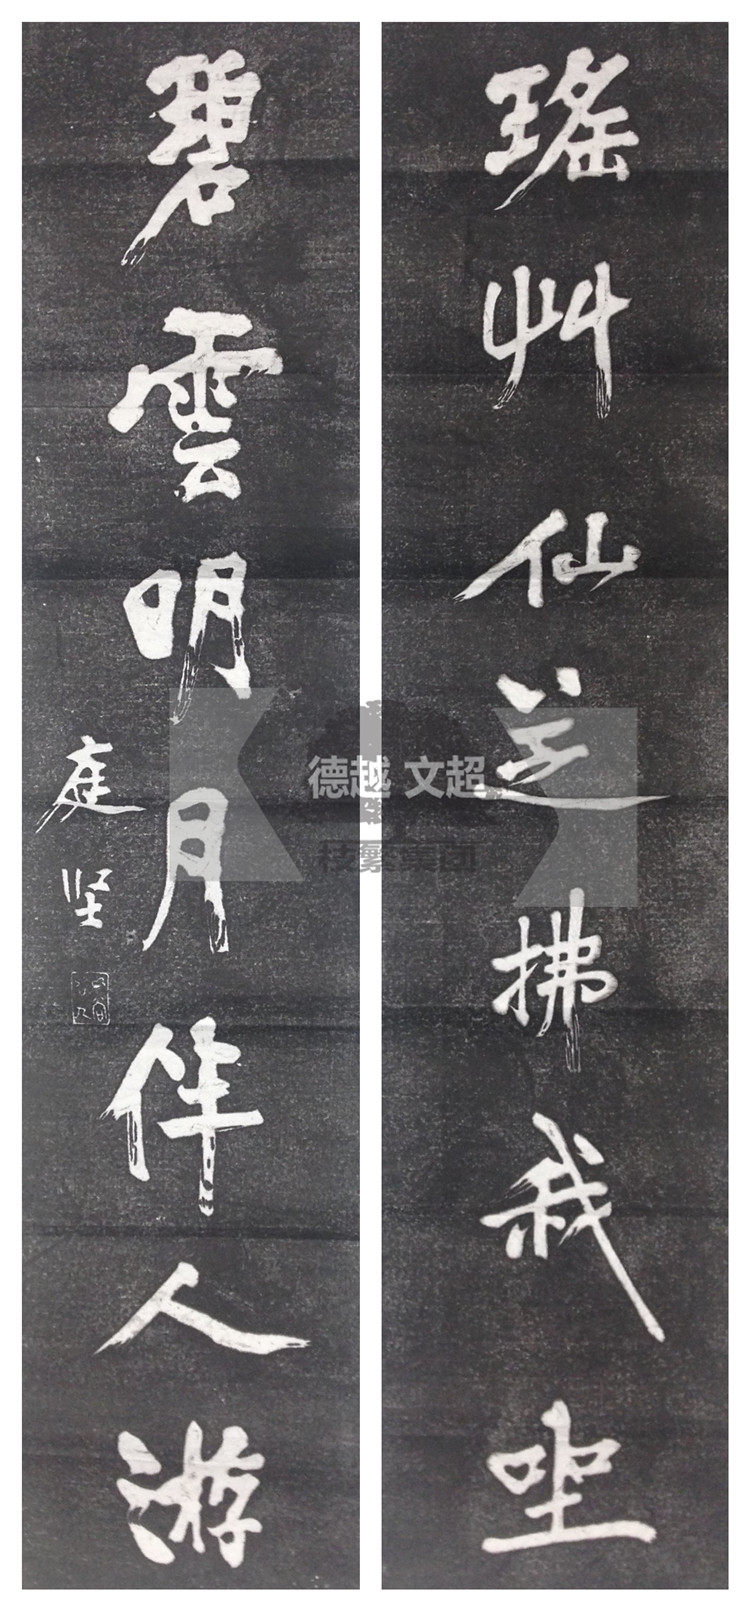 瑤艸仙芝拂我坐
碧雲明月伴人游
庭坚
德越 文超